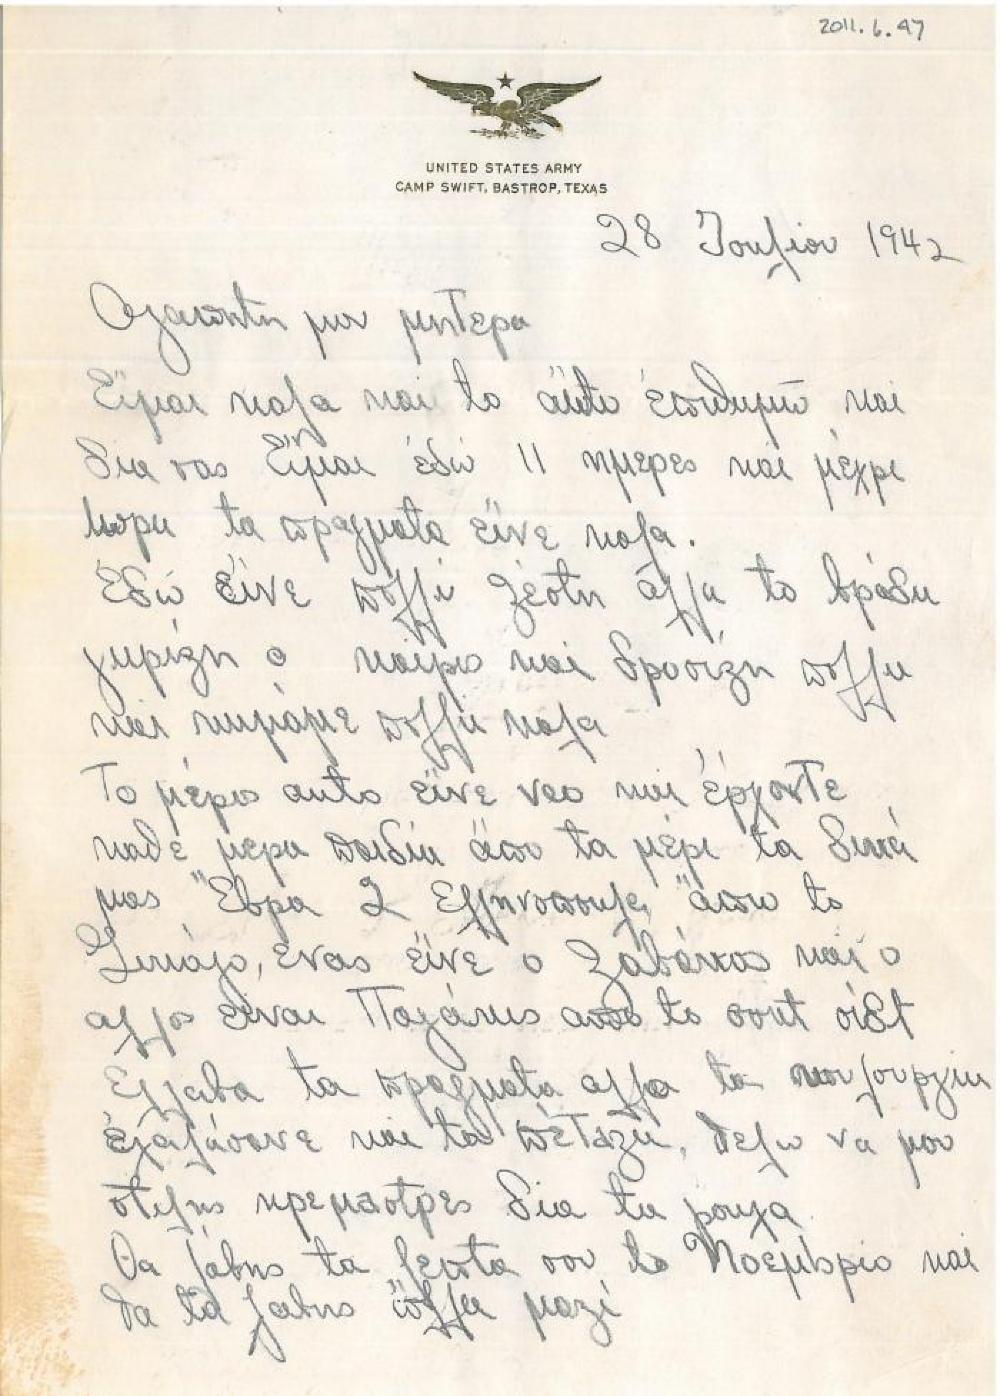 2011.6.47
UNITED STATES ARMY
CAMP SWIFT, BASTROP, TEXAS
28 Ιουλίου 1942
Αγαπητη μου μητερα
Είμαι καλα και το αυτο έπιθυμω και
δια σας Είμαι έδω 11 ημερες και μέχρι
τωρα τα πραγματα είνε καλα.
Έδω είνε πολλύ ζέστη άλλα το βράδυ
γυρίζη ο καίρος και δροσίζη πολλυ
και κιμάμε πολλυ καλα
Το μέρος αυτο είνε νεο και έρχοντε
καθέ μερα παιδία άπο τα μέρι τα δικά
μας Έβρα 2 Ελληνοπουλα άπο το
Σικάγο, ενας είνε ο Ζαβάκος και ο
αλλος είναι απο το σουτ σίδ
Ελλαβα τα πραγματα αλλα τα
και τα πέταξα, θελω να μου
στιλης κρεμαστρες δια τα ρουχα.
Θα λάβης τα λεπτα σου το Νοέμβριο και
θα τα λαβης όλλα μαζί